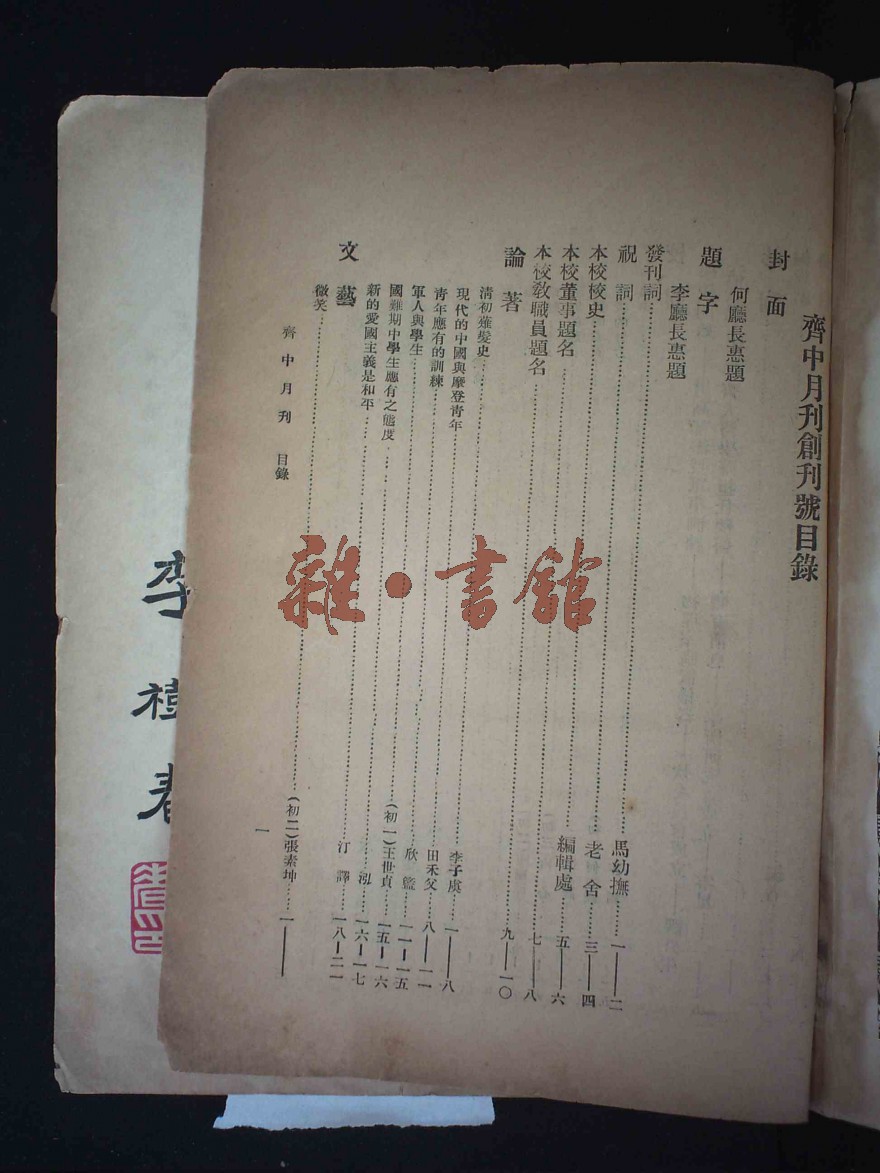 齊中月刊創刊號目錄
封面
何廳長惠題
題字
李廳長惠題
發刊詞……馬幼撫……一——二
祝詞……老舍……三——四
本校校史……編輯處……五——六
本校董事題名……七——八
本校教職員題名……九——一〇
論著
清初薙髮史……李子虞……一——八
現代的中國與摩登青年……田禾父……八——一一
青年應有的訓練……欣籃……一一—一五
軍人與學生……(初一)王世貞……一五—一六
國難期中學生應有之態度……泓……一六—一七
新的愛國主義是和平……汀譯……一八—二一
文藝
微笑……(初二)張素坤……一——
齊中月刊 目錄
一
李樹春
雜·書館